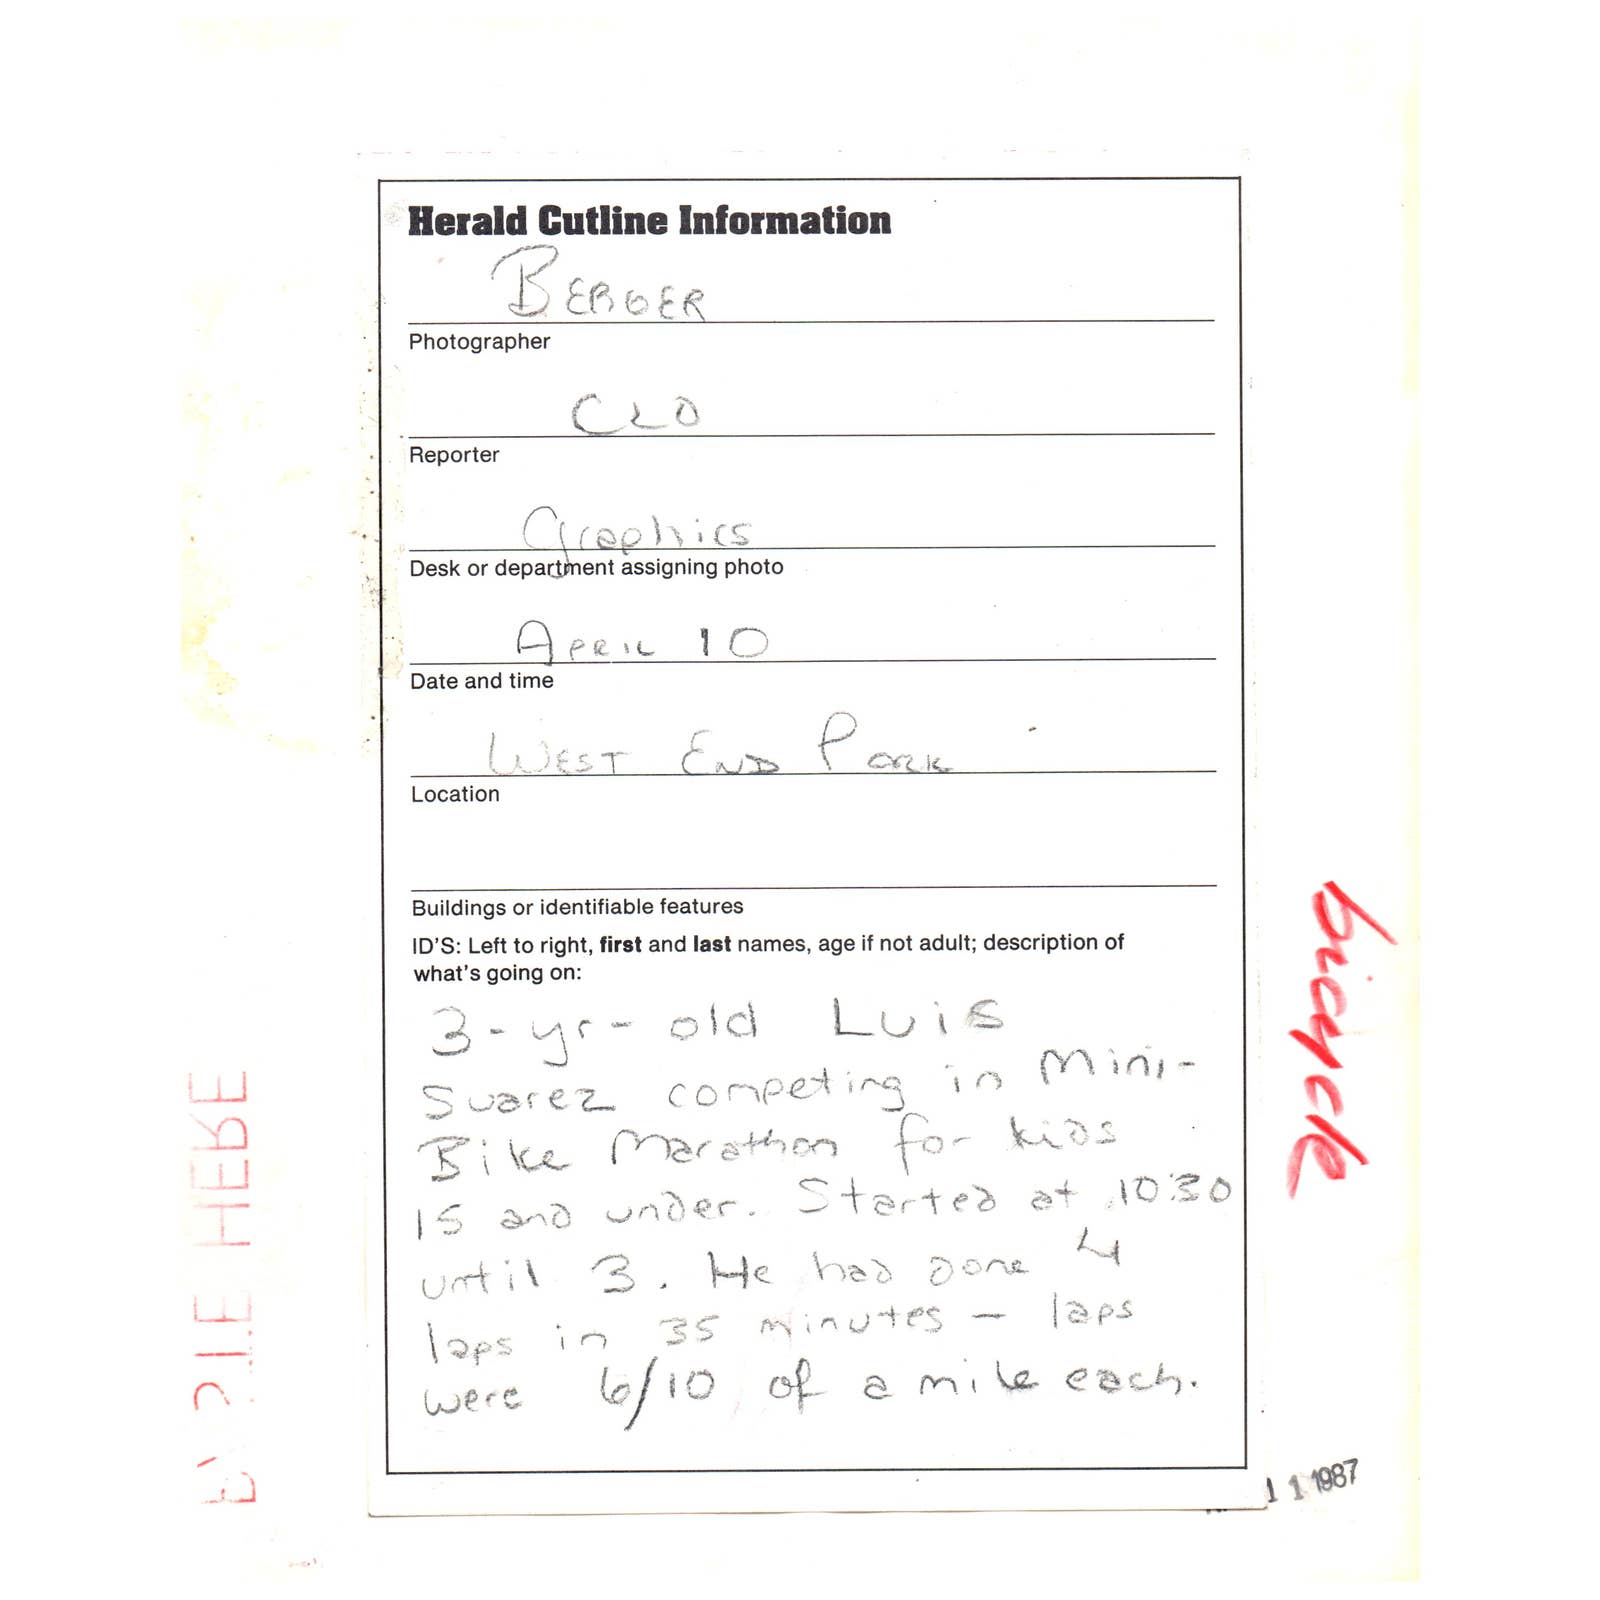 Herald Cutline Information
BERGER
Photographer
CLO
Reporter
Graphics
Desk or department assigning photo
APRIL 10
Date and time
WEST END PARK
Location
Buildings or identifiable features
ID'S: Left to right, first and last names, age if not adult; description of
what's going on:
3-yr-old Luis
Suarez competing in Mini-
Bike Marathon for kids
15 and under. Started at 10:30
until 3. He had done 4
laps in 35 minutes – laps
were 6/10 of a mile each.
bicycle
HERE
11 1987